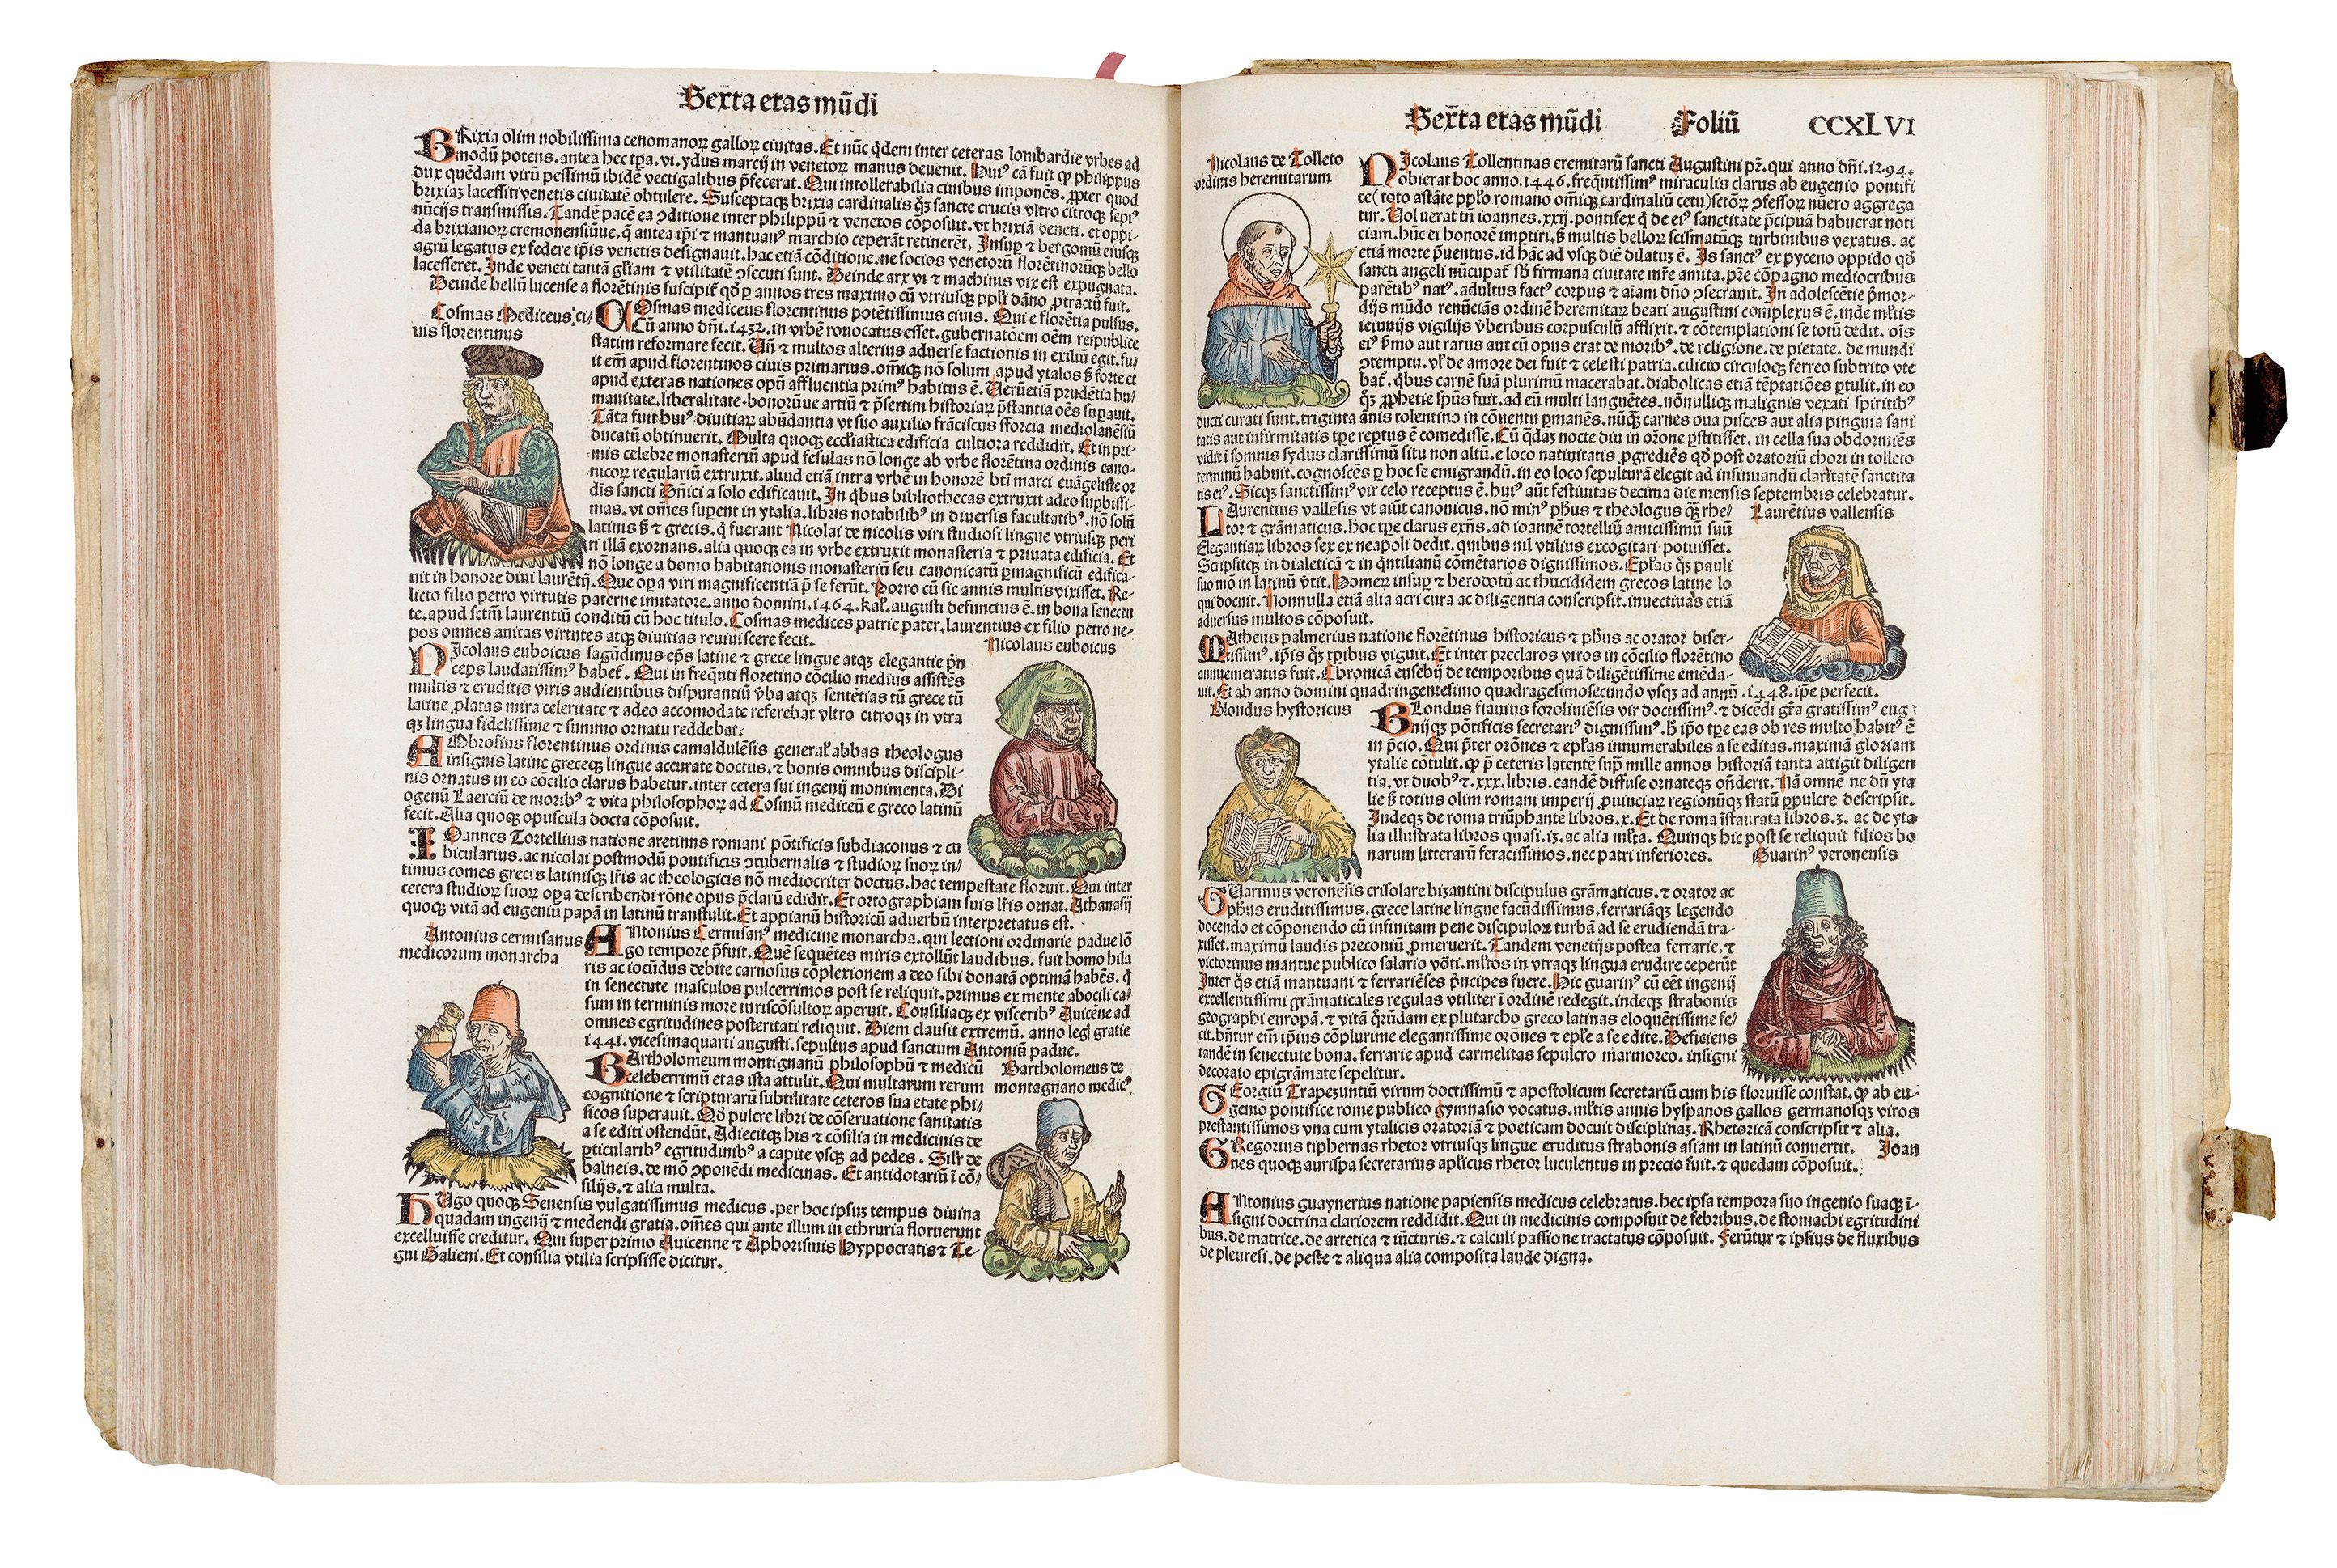 Sexta etas mũdi
BRixia olim nobilissima cenomanoꝝ galloꝝ ciuitas. Et nũc q̃dem inter ceteras lombardie vrbes ad
modũ potens. antea hec tꝑa. vi. ydus marcij in venetoꝝ manus deuenit. Huiꝰ cã fuit qꝫ philippus
dux quẽdam virũ pessimũ ibidẽ vectigalibus p̃fecerat. Qui intollerabilia ciuibus imponẽs. ꝓpter quod
brixiani lacessiti venetis ciuitatẽ obtulere. Susceptaqꝫ brixia cardinalis qꝫ sancte crucis vltro citroqꝫ sepiꝰ
nũcijs transmissis. Tandẽ pacẽ ea ꝯditione inter philippũ ⁊ venetos cõposuit. vt brixiã veneti. et oppi-
da brixianoꝝ cremonensiũue. q̃ antea ip̃i ⁊ mantuanꝰ marchio ceperãt retinerẽt. Insuꝑ ⁊ bergomũ eiusqꝫ
agrũ legatus ex federe ip̃is venetis designauit. hac etiã cõditione. ne socios venetorũ florẽtinorũqꝫ bello
lacesseret. Inde veneti tantã gl̃iam ⁊ vtilitatẽ ꝯsecuti sunt. Deinde arx vi ⁊ machinis vix est expugnata.
Deinde bellũ lucense a florẽtinis suscipit̃ qd̃ ꝑ annos tres maximo cũ vtriusqꝫ pp̃li dãno ꝓtractũ fuit.
Cosmas Mediceus. ci/
uis florentinus
COsmas mediceus florentinus potẽtissimus ciuis. Qui e florẽtia pulsus.
cũ anno dñi. 1432. in vrbẽ reuocatus esset. gubernatõem oẽm reipublice
statim reformare fecit. Vñ ⁊ multos alterius aduerse factionis in exiliũ egit. fu/
it em̃ apud florentinos ciuis primarius. om̃iqꝫ nõ solum apud ytalos sꝫ forte et
apud exteras nationes opũ affluentia primꝰ habitus ẽ. Verũetiã prudẽtia hu/
manitate. liberalitate. bonorũue artiũ ⁊ p̃sertim historiaꝝ p̃stantia oẽs suꝑauit.
Tãta fuit huiꝰ diuitiaꝝ abũdantia vt suo auxilio frãciscus sforcia mediolanẽsiũ
ducatũ obtinuerit. Multa quoqꝫ eccl̃iastica edificia cultiora reddidit. Et in pri-
mis celebre monasteriũ apud fesulas nõ longe ab vrbe florẽtina ordinis cano-
nicoꝝ regulariũ extruxit. aliud etiã intra vrbẽ in honorẽ bt̃i marci euãgeliste or
dis sancti Bñdicti a solo edificauit. In q̃bus bibliothecas extruxit adeo suꝑbissi-
mas. vt om̃es suꝑent in ytalia. libris notabilibꝰ in diuersis facultatibꝰ. nõ solũ
latinis sꝫ ⁊ grecis. q̃ fuerant Nicolai de nicolis viri studiosi lingue vtriusqꝫ peri
ti illã exornans. alia quoqꝫ ea in vrbe extruxit monasteria ⁊ priuata edificia. Et
nõ longe a domo habitationis monasteriũ seu canonicatũ ꝑmagnificũ edifica-
uit in honore diui laurẽtij. Que oꝑa viri magnificentiã p̃ se ferũt. Porro cũ sic annis multis vixisset. Re-
licto filio petro virtutis paterne imitatore. anno domini. 1464. kal̃. augusti defunctus ẽ. in bona senectu
te. apud sctm̃ laurentiũ conditũ cũ hoc titulo. Cosmas medices patrie pater. laurentius ex filio petro ne-
pos omnes auitas virtutes atqꝫ diuitias reuiuiscere fecit.
Nicolaus euboicus
NIcolaus euboicus sagũdinus ep̃s latine ⁊ grece lingue atqꝫ elegantie p̃n
ceps laudatissimꝰ habet̃. Qui in freq̃nti floretino cõcilio medius assistẽs
multis ⁊ eruditis viris audientibus disputantiũ v̓ba atqꝫ sentẽtias tũ grece tũ
latine ꝓlatas mira celeritate ⁊ adeo accomodate referebat vltro citroqꝫ in vtra
qꝫ lingua fidelissime ⁊ summo ornatu reddebat.
AMbrosius florentinus ordinis camaldulẽsis general̃ abbas theologus
insignis latine greceqꝫ lingue accurate doctus. ⁊ bonis omnibus discipli-
nis ornatus in eo cõcilio clarus habetur. inter cetera sui ingenij monimenta. Di
ogenũ Laerciũ de moribꝰ ⁊ vita philosophoꝝ ad Cosmũ mediceũ e greco latinũ
fecit. Alia quoqꝫ opuscula docta cõposuit.
IOannes Tortellius natione aretinns romani põtificis subdiaconus ⁊ cu
bicularius. ac nicolai postmodũ pontificis ꝯtubernalis ⁊ studioꝝ suoꝝ in/
timus comes grecis latinisqꝫ lr̃is ac theologicis nõ mediocriter doctus. hac tempestate floruit. Qui inter
cetera studioꝝ suoꝝ oꝑa describendi rõne opus p̃clarũ edidit. Et ortographiam suis lr̃is ornat. Athanasij
quoqꝫ vitã ad eugeniũ papã in latinũ transtulit. Et appianũ historicũ aduerbũ interpretatus est.
Antonius cermisanus
medicorum monarcha
ANtonius Cermisanꝰ medicine monarcha. qui lectioni ordinarie padue lõ
go tempore p̃fuit. Quẽ sequẽtes miris extollũt laudibus. fuit homo hila
ris ac iocũdus debite carnosus cõplexionem a deo sibi donatã optimã habẽs. q̃
in senectute masculos pulcerrimos post se reliquit. primus ex mente abocili ca/
sum in terminis more iuriscõsultoꝝ aperuit. Consiliaqꝫ ex visceribꝰ Auicẽne ad
omnes egritudines posteritati reliquit. Diem clausit extremũ. anno legꝭ gratie
1441. vicesimaquarti augusti. sepultus apud sanctum Antoniũ padue.
Bartholomeus de
montagnano medicꝰ
BArtholomeum montignanũ philosophũ ⁊ medicũ
celeberrimũ etas ista attulit. Qui multarum rerum
cognitione ⁊ scripturarũ subtilitate ceteros sua etate phi/
sicos superauit. Qd̃ pulcre libri de cõseruatione sanitatis
a se editi ostendũt. Adiecitqꝫ his ⁊ cõsilia in medicinis de
ꝑticularibꝰ egritudinibꝰ a capite vsqꝫ ad pedes. Sil̃r de
balneis. de mõ ꝯponẽdi medicinas. Et antidotariũ ĩ cõ/
silijs. ⁊ alia multa.
HUgo quoqꝫ Senensis vulgatissimus medicus. per hoc ipsuꝫ tempus diuina
quadam ingenij ⁊ medendi gratia. om̃es qui ante illum in ethruria floruerunt
excelluisse creditur. Qui super primo Auicenne ⁊ Aphorismis Hyppocratis ⁊ Te-
gni Galieni. Et consilia vtilia scripsisse dicitur.
Sexta etas mũdi Foliũ CCXLVI
Nicolaus de Tolleto
ordinis heremitarum
NIcolaus Tollentinas eremitarũ sancti Augustini pr̃. qui anno dñi. 1294.
obierat hoc anno. 1446. freq̃ntissimꝰ miraculis clarus ab eugenio pontifi
ce (toto astãte pp̃lo romano om̃iqꝫ cardinaliũ cetu) sctõꝝ ꝯfessoꝝ nũero aggrega
tur. Voluerat tñ ioannes. xxij. pontifex q̃ de eiꝰ sanctitate p̃cipuã habuerat noti
ciam. hũc ei honorẽ imꝑtiri. sꝫ multis belloꝝ scismatũqꝫ turbinibus vexatus. ac
etiã morte p̃uentus. id hãc ad vsqꝫ diẽ dilatuꝫ ẽ. Is sanctꝰ ex pyceno oppido qd̃
sancti angeli nũcupat̃ sb̃ firmana ciuitate mr̃e amita. pr̃e cõpagno mediocribus
parẽtibꝰ natꝰ. adultus factꝰ corpus ⁊ aĩam dño ꝯsecrauit. In adolescẽtie p̃mor-
dijs mũdo renũciãs ordinẽ heremitaꝝ beati augustini complexus ẽ. inde ml̃tis
ieiunijs vigilijs v̓beribus corpusculũ afflixit. ⁊ cõtemplationi se totũ dedit. oĩs
eiꝰ s̓mo aut rarus aut cũ opus erat de moribꝰ. de religione. de pietate. de mundi
ꝯtemptu. vl̃ de amore dei fuit ⁊ celesti patria. cilicio circuloqꝫ ferreo subtrito vte
bat̃. q̃bus carnẽ suã plurimũ macerabat. diabolicas etiã tẽptatiões ꝑtulit. in eo
qꝫ ꝓphetie sp̃us fuit. ad eũ multi languẽtes. nõnulliqꝫ malignis vexati spiritibꝰ
ducti curati sunt. triginta ãnis tolentino in cõuentu ꝑmanẽs. nũqꝫ carnes oua pisces aut alia pinguia sani
tatis aut infirmitatis tꝑe reꝑtus ẽ comedisse. Cũ q̃daꝫ nocte diu in orõne ꝑstitisset. in cella sua obdormiẽs
vidit ĩ somnis sydus clarissimũ situ non altũ. e loco natiuitatis ꝓgrediẽs qd̃ post oratoriũ chori in tolleto
terminũ habuit. cognoscẽs ꝑ hoc se emigrandũ. in eo loco sepulturã elegit ad insinuandũ claritatẽ sanctita
tis eiꝰ. Sicqꝫ sanctissimꝰ vir celo receptus ẽ. huiꝰ aũt festiuitas decima die mensis septembris celebratur.
Laurẽtius vallensis
LAurentius vallẽsis vt aiũt canonicus. nõ minꝰ ph̃us ⁊ theologus qꝫ rhe/
tor ⁊ grãmaticus. hoc tꝑe clarus exñs. ad ioannẽ tortelliũ amicissimũ suũ
Elegantiaꝝ libros sex ex neapoli dedit. quibus nil vtilius excogitari potuisset.
Scripsitqꝫ in dialeticã ⁊ in q̃ntilianũ cõmẽtarios dignissimos. Ep̃las qꝫ pauli
suo mõ in latinũ v̓tit. Homeꝝ insuꝑ ⁊ herodotũ ac thucididem grecos latine lo
qui docuit. Nonnulla etiã alia acri cura ac diligentia conscripsit. inuectiuas etiã
aduersus multos cõposuit.
MAtheus palmerius natione florẽtinus historicus ⁊ ph̃us ac orator diser-
tissimꝰ. ip̃is qꝫ tꝑibus viguit. Et inter preclaros viros in cõcilio florẽtino
annumeratus fuit. Chronicã eusebij de temporibus quã diligẽtissime emẽda-
uit. Et ab anno domini quadringentesimo quadragesimosecundo vsqꝫ ad annũ. 1448. ip̃e perfecit.
Blondus hystoricus
BLondus flauius foroliuiẽsis vir doctissimꝰ. ⁊ dicẽdi gr̃a gratissimꝰ euge
nijqꝫ põtificis secretariꝰ dignissimꝰ. h̃ ip̃o tꝑe eas ob res multo habitꝰ ẽ
in p̃cio. Qui p̃ter orõnes ⁊ ep̃las innumerabiles a se editas. maximã gloriam
ytalie cõtulit. qꝫ p̃ ceteris latentẽ suꝑ mille annos historiã tanta attigit diligen
tia. vt duobꝰ ⁊. xxx. libris. eandẽ diffuse ornateqꝫ oñderit. Nã omnẽ ne dũ yta
lie sꝫ totius olim romani imperij ꝓuinciaꝝ regionũqꝫ statũ ꝑpulcre descripsit.
Indeqꝫ de roma triũphante libros. x. Et de roma ĩstaurata libros. 3. ac de yta-
lia illustrata libros quasi. 13. ac alia ml̃ta. Quinqꝫ hic post se reliquit filios bo
narum litterarũ feracissimos. nec patri inferiores.
Guarinꝰ veronensis
GUarinus veronẽsis crisolare bizantini discipulus grãmaticus. ⁊ orator ac
ph̃us eruditissimus. grece latine lingue facũdissimus. ferrariãqꝫ legendo
docendo et cõponendo cũ infinitam pene discipuloꝝ turbã ad se erudiendã tra-
xisset. maximũ laudis preconiũ ꝓmeruerit. Tandem venetijs postea ferrarie. ⁊
victorinus mantue publico salario võti. ml̃tos in vtraqꝫ lingua erudire ceperũt
Inter q̃s etiã mantuani ⁊ ferrariẽses p̃ncipes fuere. Hic guarinꝰ cũ eẽt ingenij
excellentissimi grãmaticales regulas vtiliter ĩ ordinẽ redegit. indeqꝫ strabonis
geographi europã. ⁊ vitã q̃rũdam ex plutarcho greco latinas eloquẽtissime fe/
cit. hñtur em̃ ip̃ius cõplurime elegantissime orõnes ⁊ ep̃le a se edite. Deficiens
tandẽ in senectute bona. ferrarie apud carmelitas sepulcro marmoreo. insigni
decorato epigrãmate sepelitur.
GEorgiũ Trapezuntiũ virum doctissimũ ⁊ apostolicum secretariũ cum his floruisse constat. qꝫ ab eu-
genio pontifice rome publico gymnasio vocatus. ml̃tis annis hyspanos gallos germanosqꝫ viros
prestantissimos vna cum ytalicis oratoriã ⁊ poeticam docuit disciplinaꝫ. Rhetoricã conscripsit ⁊ alia.
GRegorius tiphernas rhetor vtriusqꝫ lingue eruditus strabonis asiam in latinũ conuertit. Joan
nes quoqꝫ aurispa secretarius apl̃icus rhetor luculentus in precio fuit. ⁊ quedam cõposuit.
ANtonius guaynerius natione papiensis medicus celebratus. hec ipsa tempora suo ingenio suaqꝫ ĩ-
signi doctrina clariorem reddidit. Qui in medicinis composuit de febribus. de stomachi egritudini
bus. de matrice. de artetica ⁊ iũcturis. ⁊ calculi passione tractatus cõposuit. Ferũtur ⁊ ipsius de fluxibus
de pleuresi. de peste ⁊ aliqua alia composita laude digna.